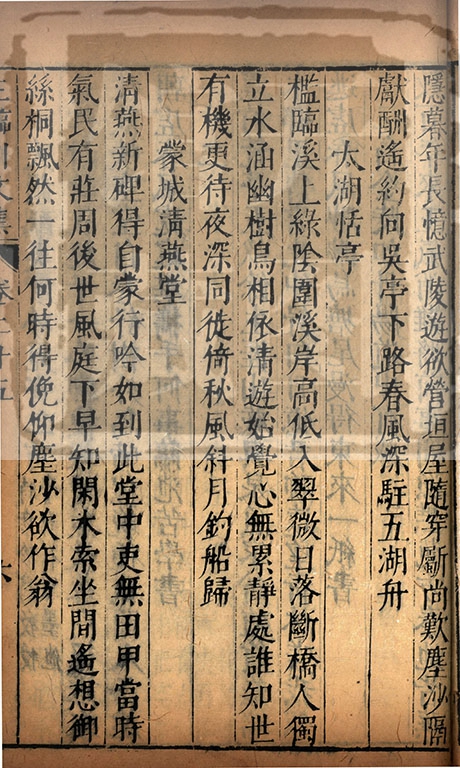 隱暮年長憶武陵遊欲營垣屋隨穿斸尚歎塵沙隔
獻酬遙約向吳亭下路春風深駐五湖舟
太湖恬亭
檻臨溪上綠陰圍溪岸高低入翠微日落斷橋人獨
立水涵幽樹鳥相依清遊始覺心無累靜處誰知世
有機更待夜深同徙倚秋風斜月釣船歸
蒙城清燕堂
清燕新碑得自蒙行吟如到此堂中吏無田甲當時
氣民有莊周後世風庭下早知閑木索坐間遙想御
絲桐飄然一往何時得俛仰塵沙欲作翁
王臨川文集 卷二十五 六